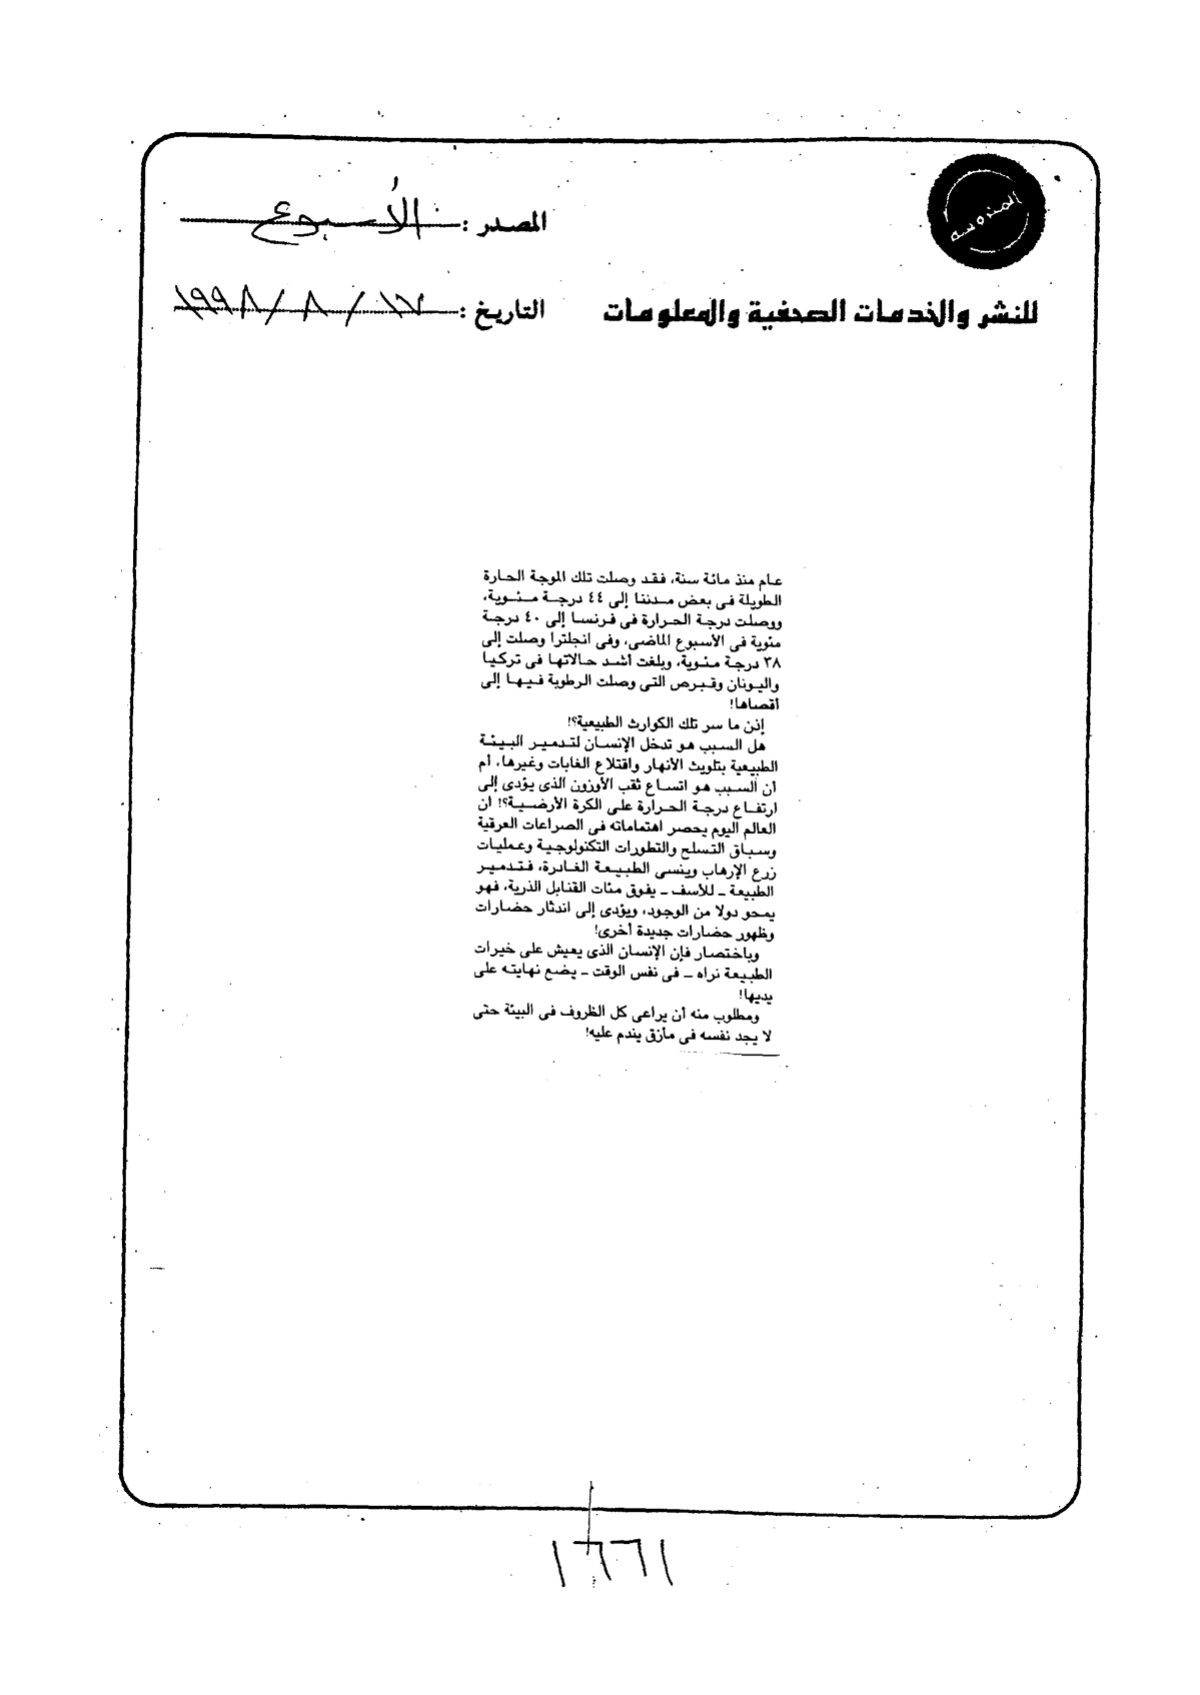 المحروسة
المصدر : الأسبوع
للنشر والخدمات الصحفية والمعلومات
التاريخ : ١٧ / ٨ / ١٩٩٨
عام منذ مائة سنة، فقد وصلت تلك الموجة الحارة
الطويلة فى بعض مدننا إلى ٤٤ درجة مئوية،
ووصلت درجة الحرارة فى فرنسا إلى ٤٠ درجة
مئوية فى الأسبوع الماضى، وفى انجلترا وصلت إلى
٣٨ درجة مئوية، وبلغت أشد حالاتها فى تركيا
واليونان وقبرص التى وصلت الرطوبة فيها إلى
أقصاها!
إذن ما سر تلك الكوارث الطبيعية؟!
هل السبب هو تدخل الإنسان لتدمير البيئة
الطبيعية بتلويث الأنهار واقتلاع الغابات وغيرها، أم
أن السبب هو اتساع ثقب الأوزون الذى يؤدى إلى
ارتفاع درجة الحرارة على الكرة الأرضية؟! ان
العالم اليوم يحصر اهتماماته فى الصراعات العرقية
وسباق التسلح والتطورات التكنولوجية وعمليات
زرع الإرهاب وينسى الطبيعة الغادرة، فتدمير
الطبيعة ــ للأسف ــ يفوق مئات القنابل الذرية، فهو
يمحو دولا من الوجود، ويؤدى إلى اندثار حضارات
وظهور حضارات جديدة أخرى!
وباختصار فإن الإنسان الذى يعيش على خيرات
الطبيعة نراه ــ فى نفس الوقت ــ يضع نهايته على
يديها!
ومطلوب منه أن يراعى كل الظروف فى البيئة حتى
لا يجد نفسه فى مأزق يندم عليه!